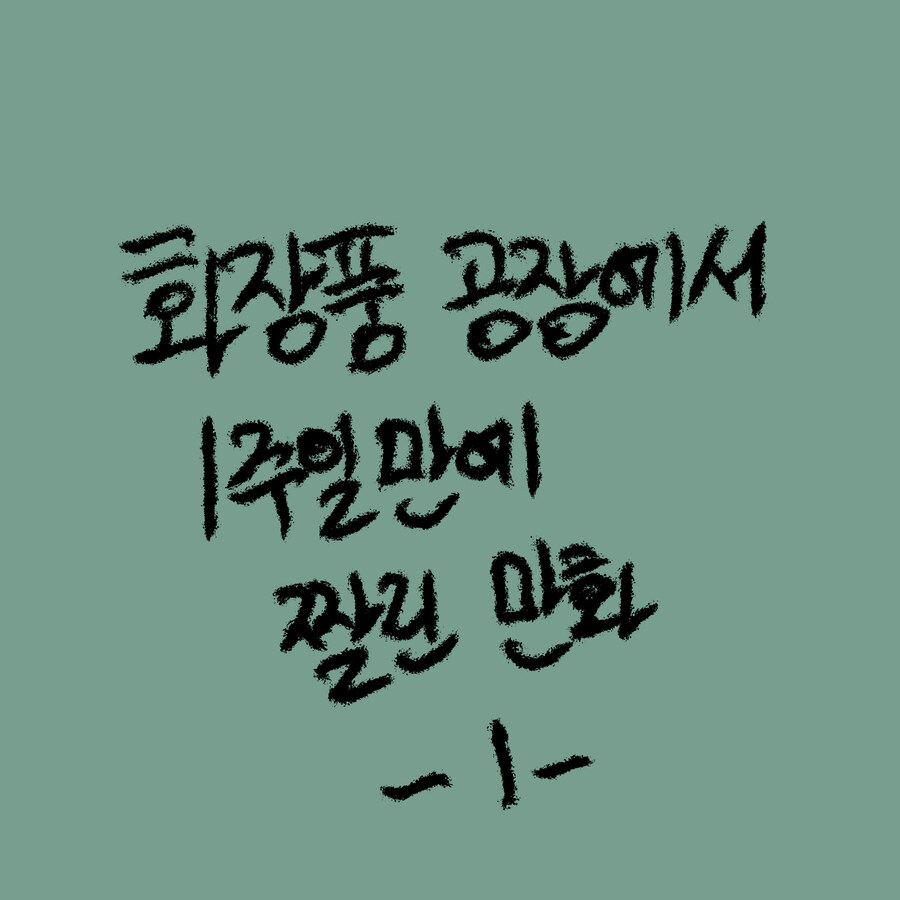 화장품 공장에서
1주일만에
짤린 만화
-1-